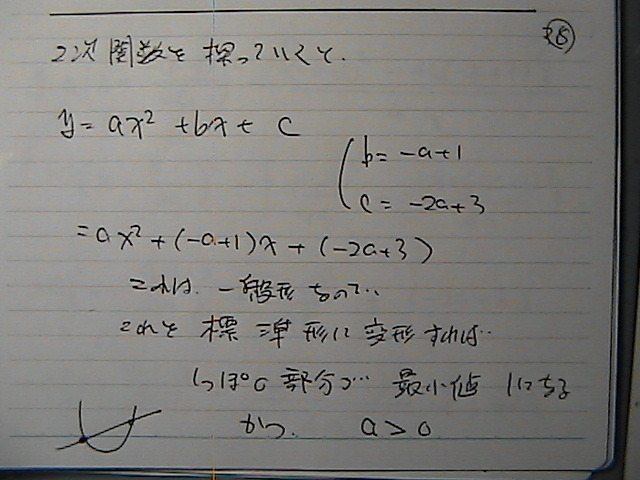 28
2次関数を探っていくと.
y = ax² + bx + c
b = -a+1
c = -2a+3
= ax² + (-a+1)x + (-2a+3)
これは. 一般形なので..
これを 標準形に変形すれば..
しっぽの部分が… 最小値になる
かつ. a > 0